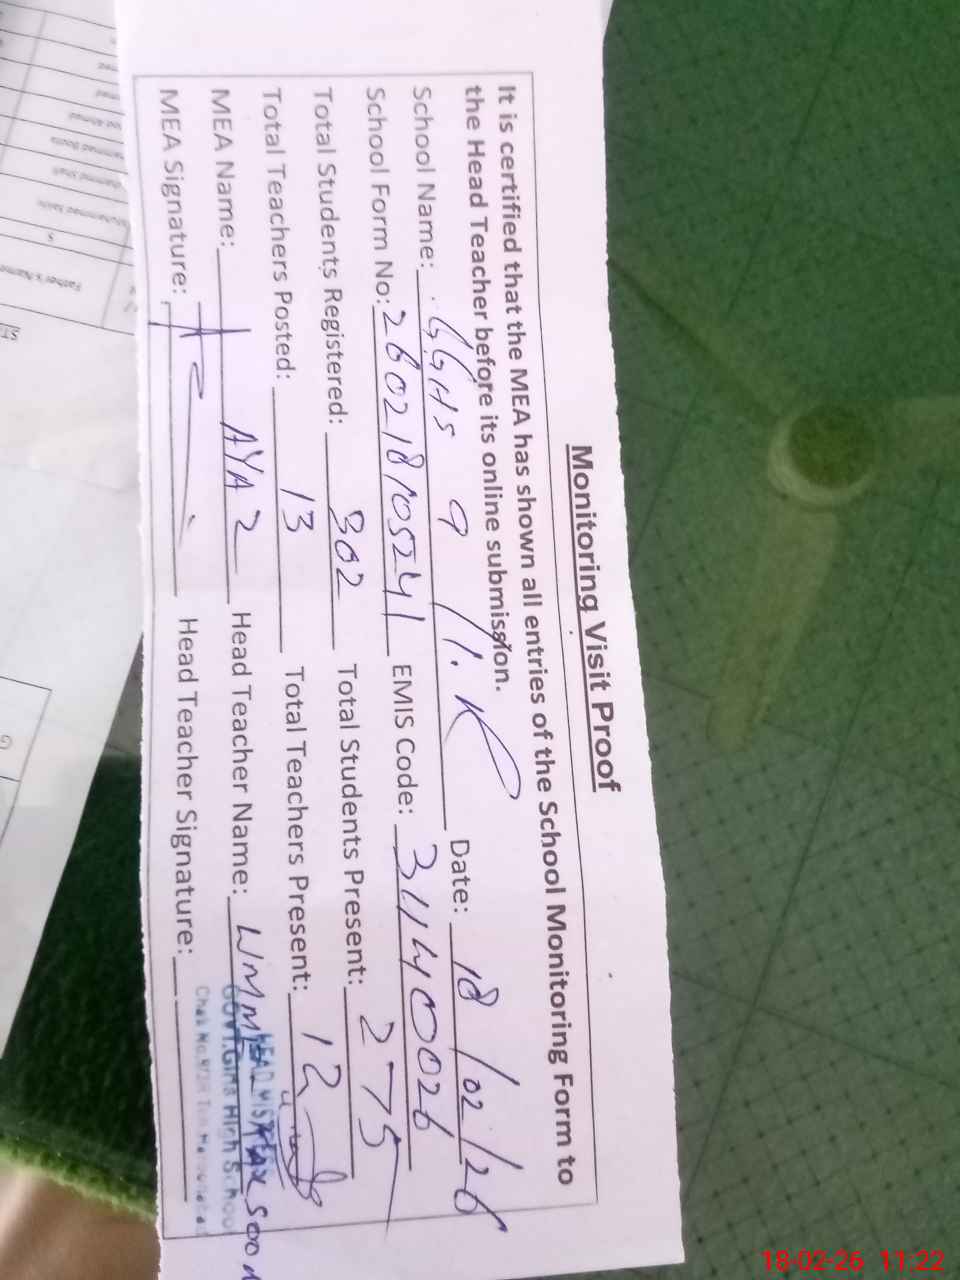 Monitoring Visit Proof
It is certified that the MEA has shown all entries of the School Monitoring Form to
the Head Teacher before its online submission.
School Name: GGHS 9 11.R Date: 18/02/26
School Form No: 260218105241 EMIS Code: 31140026
Total Students Registered: 302 Total Students Present: 275
Total Teachers Posted: 13 Total Teachers Present: 12
MEA Name: AYAZ Head Teacher Name:
MEA Signature: Head Teacher Signature:
HEADMISTRESS
Govt. Girls High School
Chak No.
Father's Name
18-02-26 11:22